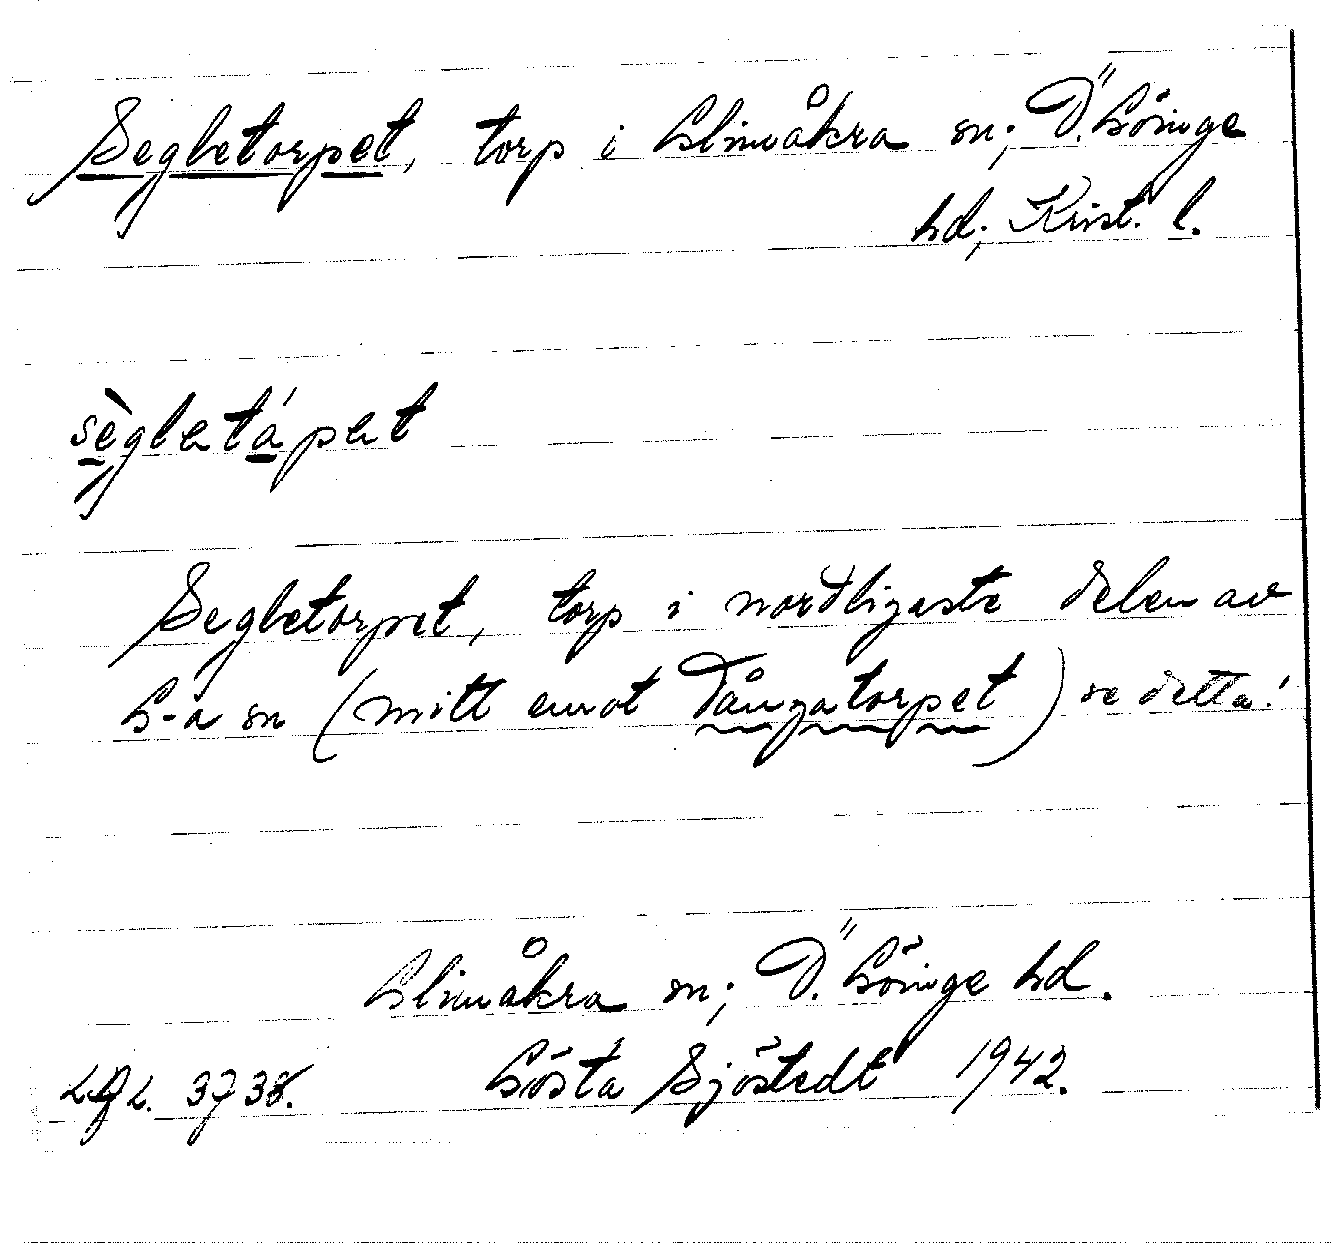 Segletorpet, torp i Glimåkra sn; Ö. Göinge
hd; Krist. l.
sègletápet
Segletorpet, torp i nordligaste delen av
G-a sn (mitt emot Tångatorpet) se detta!
Glimåkra sn; Ö. Göinge hd.
Gösta Sjöstedt 1942.
3738.